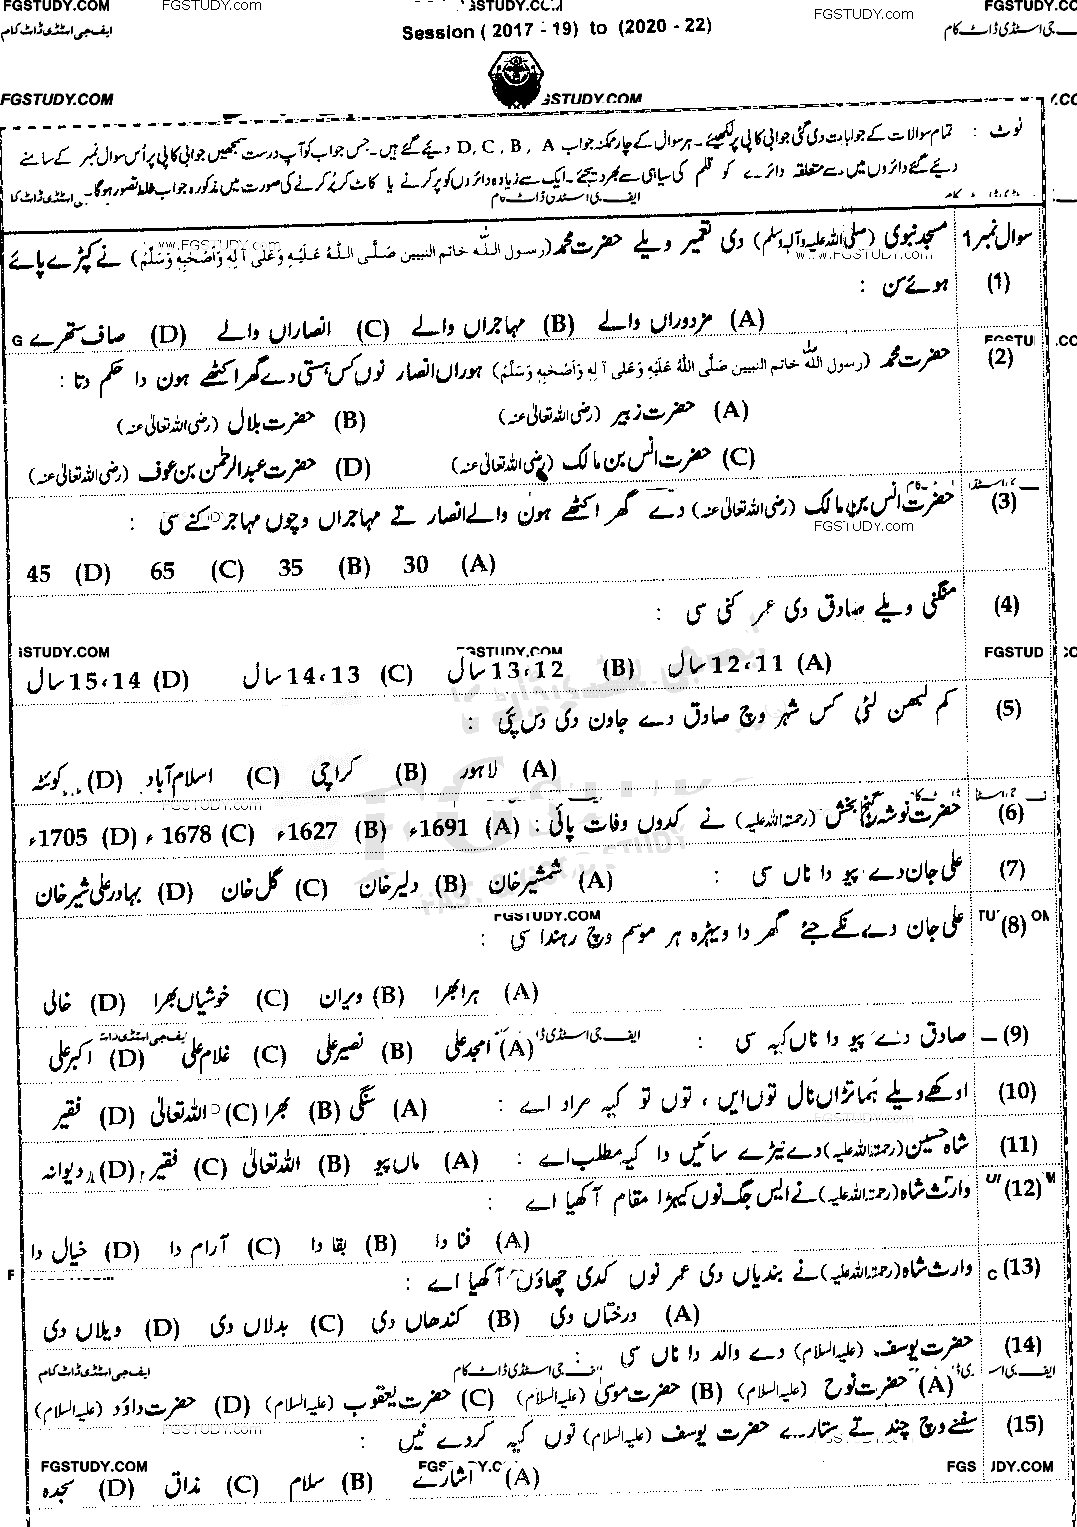 FGSTUDY.COM FGSTUDY.com FGSTUDY.com FGSTUDY.COM
ایف جی اسٹڈی ڈاٹ کام
Session ( 2017 - 19) to (2020 - 22)
FGSTUDY.COM
نوٹ : تمام سوالات کے جوابات دی گئی جوابی کاپی پر لکھیئے۔ ہر سوال کے چار ممکنہ جواب A ، B ، C ، D دیئے گئے ہیں۔ جس جواب کو آپ درست سمجھیں جوابی کاپی پر اُس سوال نمبر کے سامنے
دیئے گئے دائروں میں سے متعلقہ دائرے کو قلم کی سیاہی سے بھر دیجئے۔ ایک سے زیادہ دائروں کو پُر کرنے یا کاٹ کر پُر کرنے کی صورت میں مذکورہ جواب غلط تصور ہوگا۔
سوال نمبر 1 مسجد نبوی (صلی اللہ علیہ وآلہ وسلم) دی تعمیر ویلے حضرت محمد (رسول اللہ خاتم النبیین صَلَّی اللہُ عَلَیْہِ وَعَلٰی آلِہٖ وَاَصْحَابِہٖ وَسَلَّمَ) نے کپڑے پائے
(1) ہوئے سن :
(A) مزدوراں والے (B) مہاجراں والے (C) انصاراں والے (D) صاف ستھرے
(2) حضرت محمد (رسول اللہ خاتم النبیین صَلَّی اللہُ عَلَیْہِ وَعَلٰی آلِہٖ وَاَصْحَابِہٖ وَسَلَّمَ) ہوراں انصار نوں کس ہستی دے گھر اکٹھے ہون دا حکم دتا :
(A) حضرت زبیر (رضی اللہ تعالیٰ عنہ) (B) حضرت بلال (رضی اللہ تعالیٰ عنہ)
(C) حضرت انس بن مالک (رضی اللہ تعالیٰ عنہ) (D) حضرت عبدالرحمن بن عوف (رضی اللہ تعالیٰ عنہ)
(3) حضرت انس بن مالک (رضی اللہ تعالیٰ عنہ) دے گھر اکٹھے ہون والے انصار تے مہاجراں وچوں مہاجر کنے سی :
FGSTUDY.com
(A) 30 (B) 35 (C) 65 (D) 45
(4) منگنی ویلے صادق دی عمر کنی سی :
(A) 12،11 سال (B) 13،12 سال (C) 14،13 سال (D) 15،14 سال
(5) کم لبھن لئی کس شہر وچ صادق دے جاون دی دس پئی :
(A) لاہور (B) کراچی (C) اسلام آباد (D) کوئٹہ
(6) حضرت نوشہ گنج بخش (رحمۃ اللہ علیہ) نے کدوں وفات پائی : (A) 1691ء (B) 1627ء (C) 1678ء (D) 1705ء
(7) علی جان دے پیو دا ناں سی : (A) شمشیر خان (B) دلیر خان (C) گل خان (D) بہادر علی شیر خان
FGSTUDY.COM
(8) علی جان دے نکے جئے گھر دا ویہڑہ ہر موسم وچ رہندا سی :
(A) ہرا بھرا (B) ویران (C) خوشیاں بھرا (D) خالی
(9) صادق دے پیو دا ناں کیہ سی : (A) امجد علی (B) نصیر علی (C) غلام علی (D) اکبر علی
(10) اوکھے ویلے نماتڑاں نال توں ایں ، توں تو کیہ مراد اے : (A) سنگی (B) بھرا (C) اللہ تعالیٰ (D) فقیر
(11) شاہ حسین (رحمۃ اللہ علیہ) دے نیڑے سائیں دا کیہ مطلب اے : (A) ماں پیو (B) اللہ تعالیٰ (C) فقیر (D) دیوانہ
(12) وارث شاہ (رحمۃ اللہ علیہ) نے ایس جگ نوں کیہڑا مقام آکھیا اے :
(A) فنا دا (B) بقا دا (C) آرام دا (D) خیال دا
(13) وارث شاہ (رحمۃ اللہ علیہ) نے بندیاں دی عمر نوں کدی چھاؤں آکھیا اے :
(A) درختاں دی (B) کندھاں دی (C) بدلاں دی (D) ویلاں دی
(14) حضرت یوسف (علیہ السلام) دے والد دا ناں سی :
ایف جی اسٹڈی ڈاٹ کام
(A) حضرت نوح (علیہ السلام) (B) حضرت موسیٰ (علیہ السلام) (C) حضرت یعقوب (علیہ السلام) (D) حضرت داؤد (علیہ السلام)
(15) سفنے وچ چند تے ستارے حضرت یوسف (علیہ السلام) نوں کیہ کردے نیں :
FGSTUDY.COM
(A) اشارے (B) سلام (C) مذاق (D) سجدہ